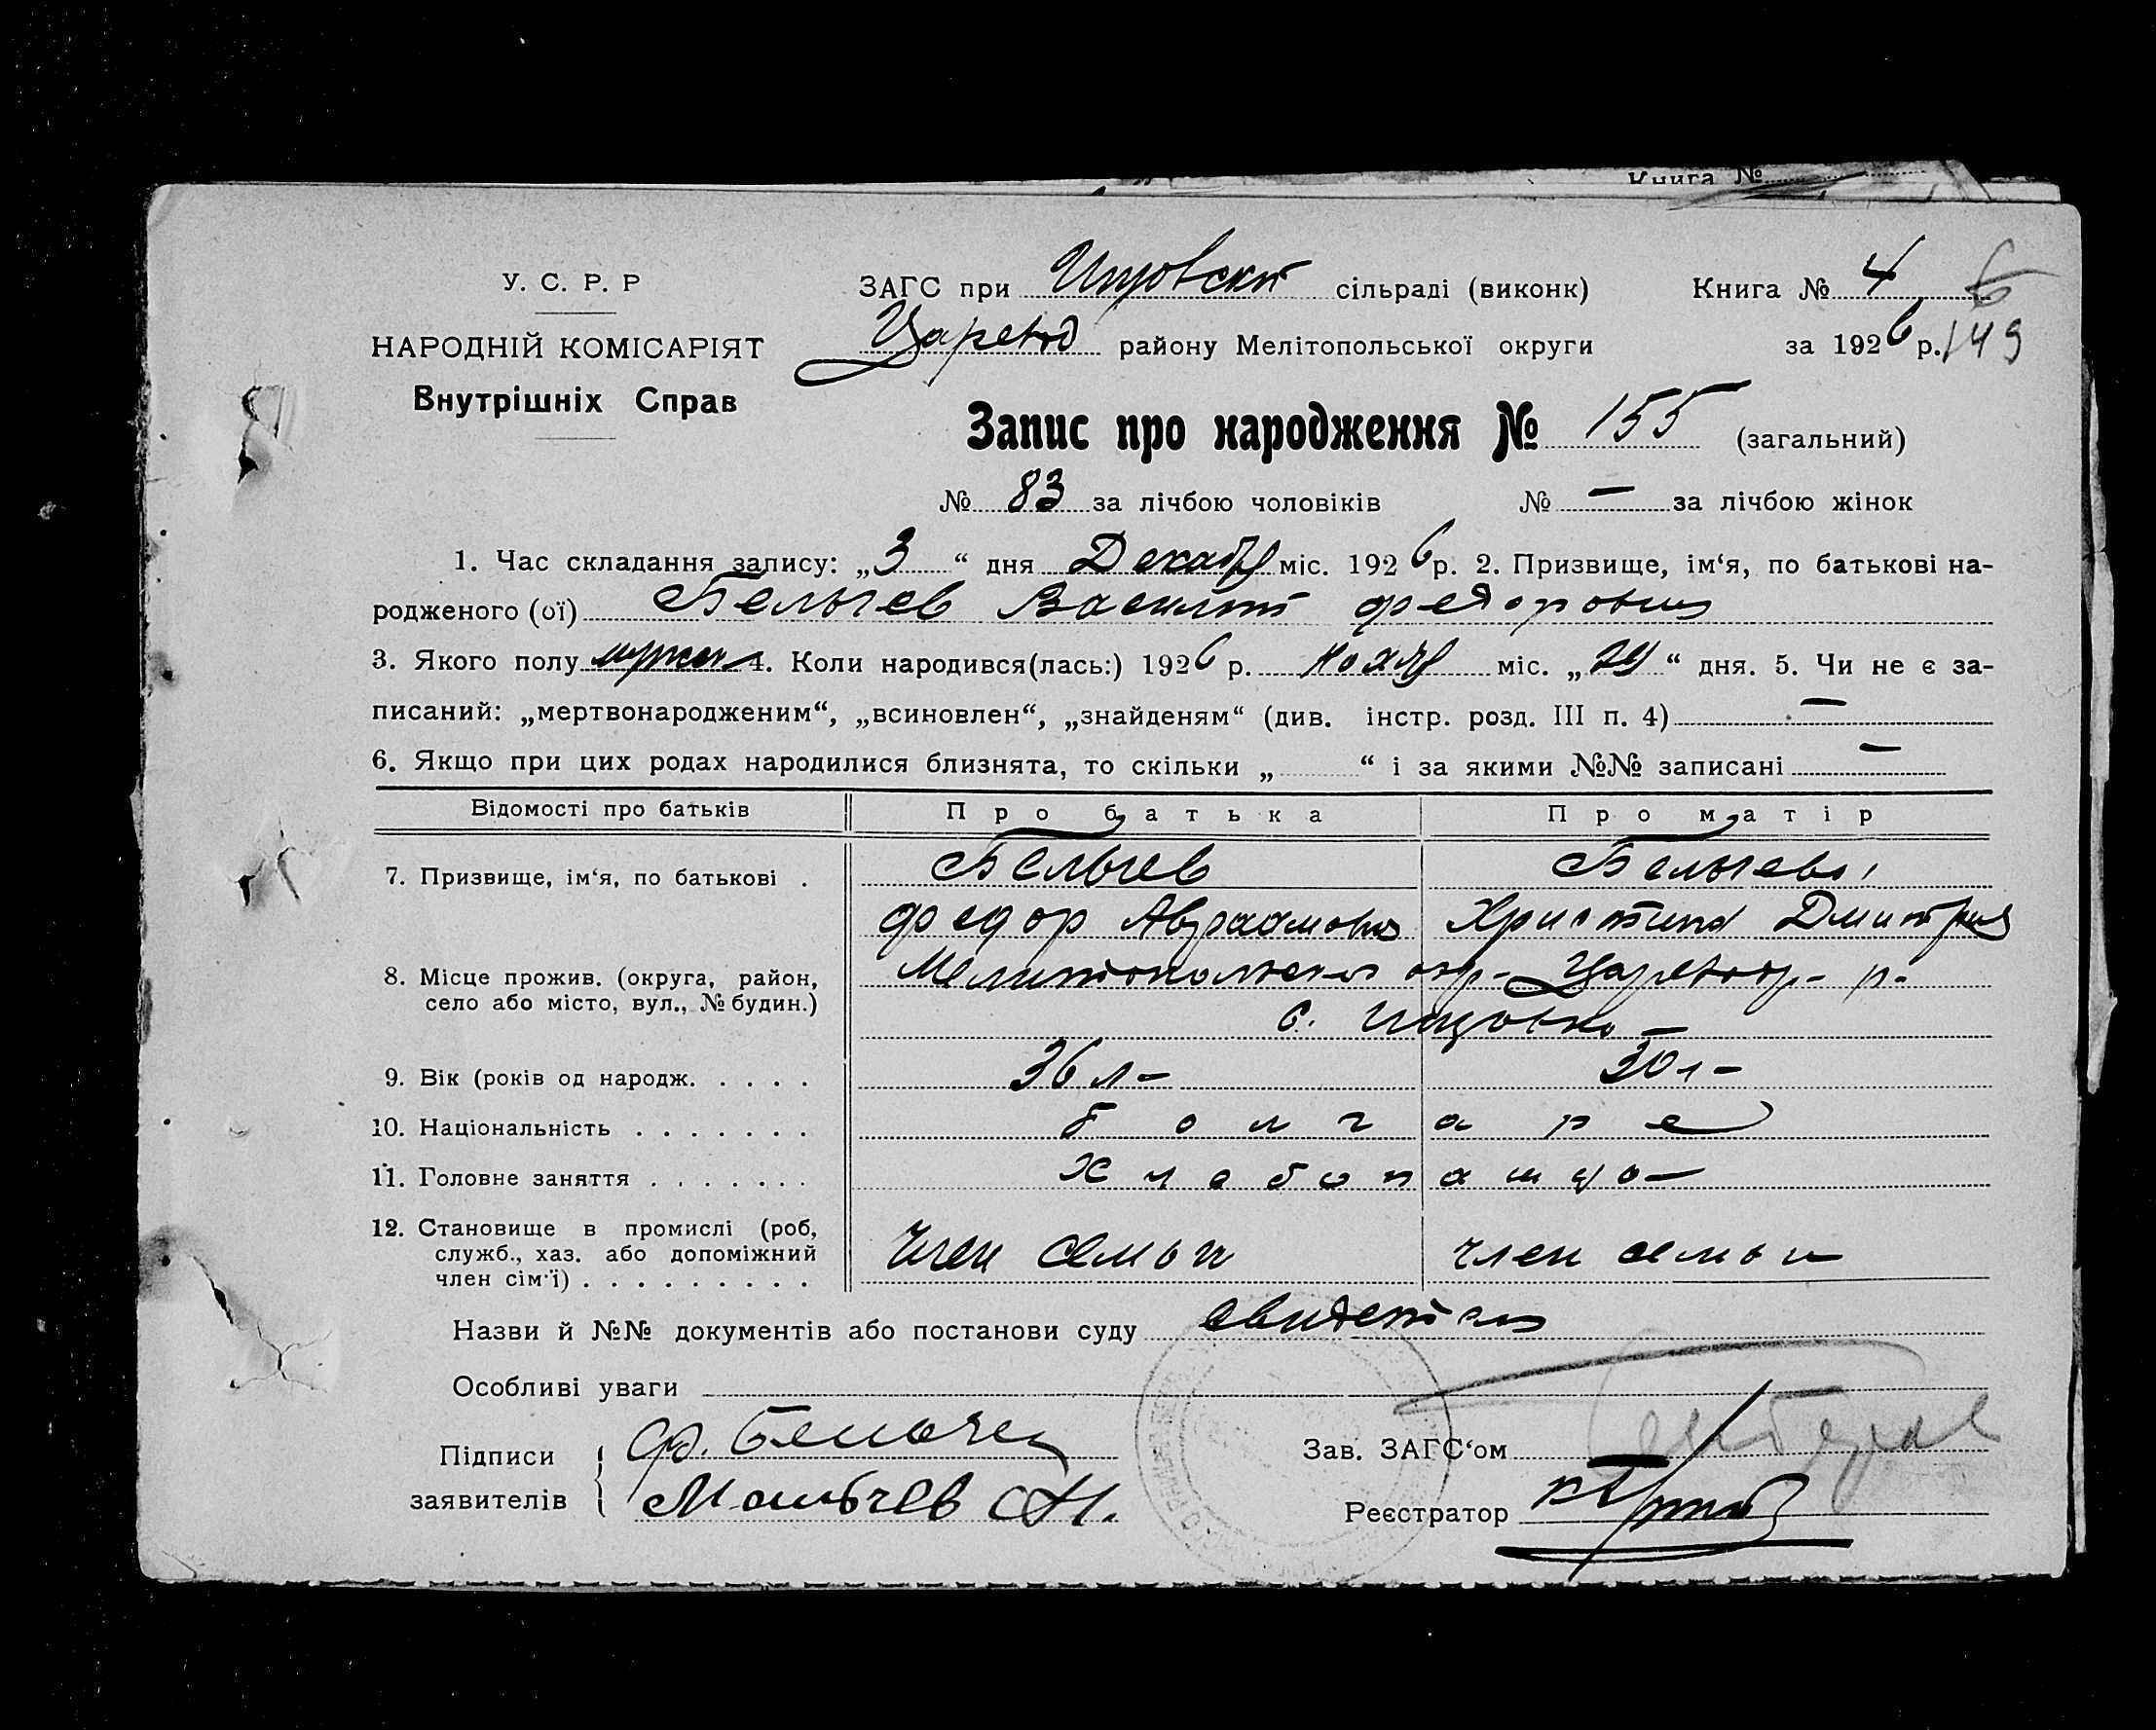 Книга №
У. С. Р. Р
НАРОДНІЙ КОМІСАРІЯТ
Внутрішніх Справ
ЗАГС при сільраді (виконк)
Книга № 4 6
Царевод району Мелітопольської округи
за 1926 р. 149
Запис про народження № 155 (загальний)
№ 83 за лічбою чоловіків № — за лічбою жінок
1. Час складання запису: „3“ дня Декабр міс. 1926 р. 2. Призвище, ім‘я, по батькові на-
родженого (ої) Бельчев Василий Федорович
3. Якого полу мужск 4. Коли народився(лась:) 1926 р. ноябр міс. „29“ дня. 5. Чи не є за-
писаний: „мертвонародженим“, „всиновлен“, „знайденям“ (див. інстр. розд. III п. 4) —
6. Якщо при цих родах народилися близнята, то скільки „ “ і за якими №№ записані —
Відомості про батьків Про батька Про матір
7. Призвище, ім‘я, по батькові . Бельчев Бельчева
Федор Авраамович Христина Дмитрие
8. Місце прожив. (округа, район, Мелитопольской окр- Царевод- р-
село або місто, вул., № будин.)
с.
9. Вік (років од народж. . . . . 36 л- 30 л-
10. Національність . . . . . . . болгаре
11. Головне заняття . . . . . . . хлебопашцы
12. Становище в промислі (роб,
служб., хаз. або допоміжний член семьи член семьи
член сім‘ї) . . . . . . . . .
Назви й №№ документів або постанови суду
Особливі уваги
Підписи Ф. Бельчев
Зав. ЗАГС‘ом
заявителів Мальчев Н.
Реєстратор